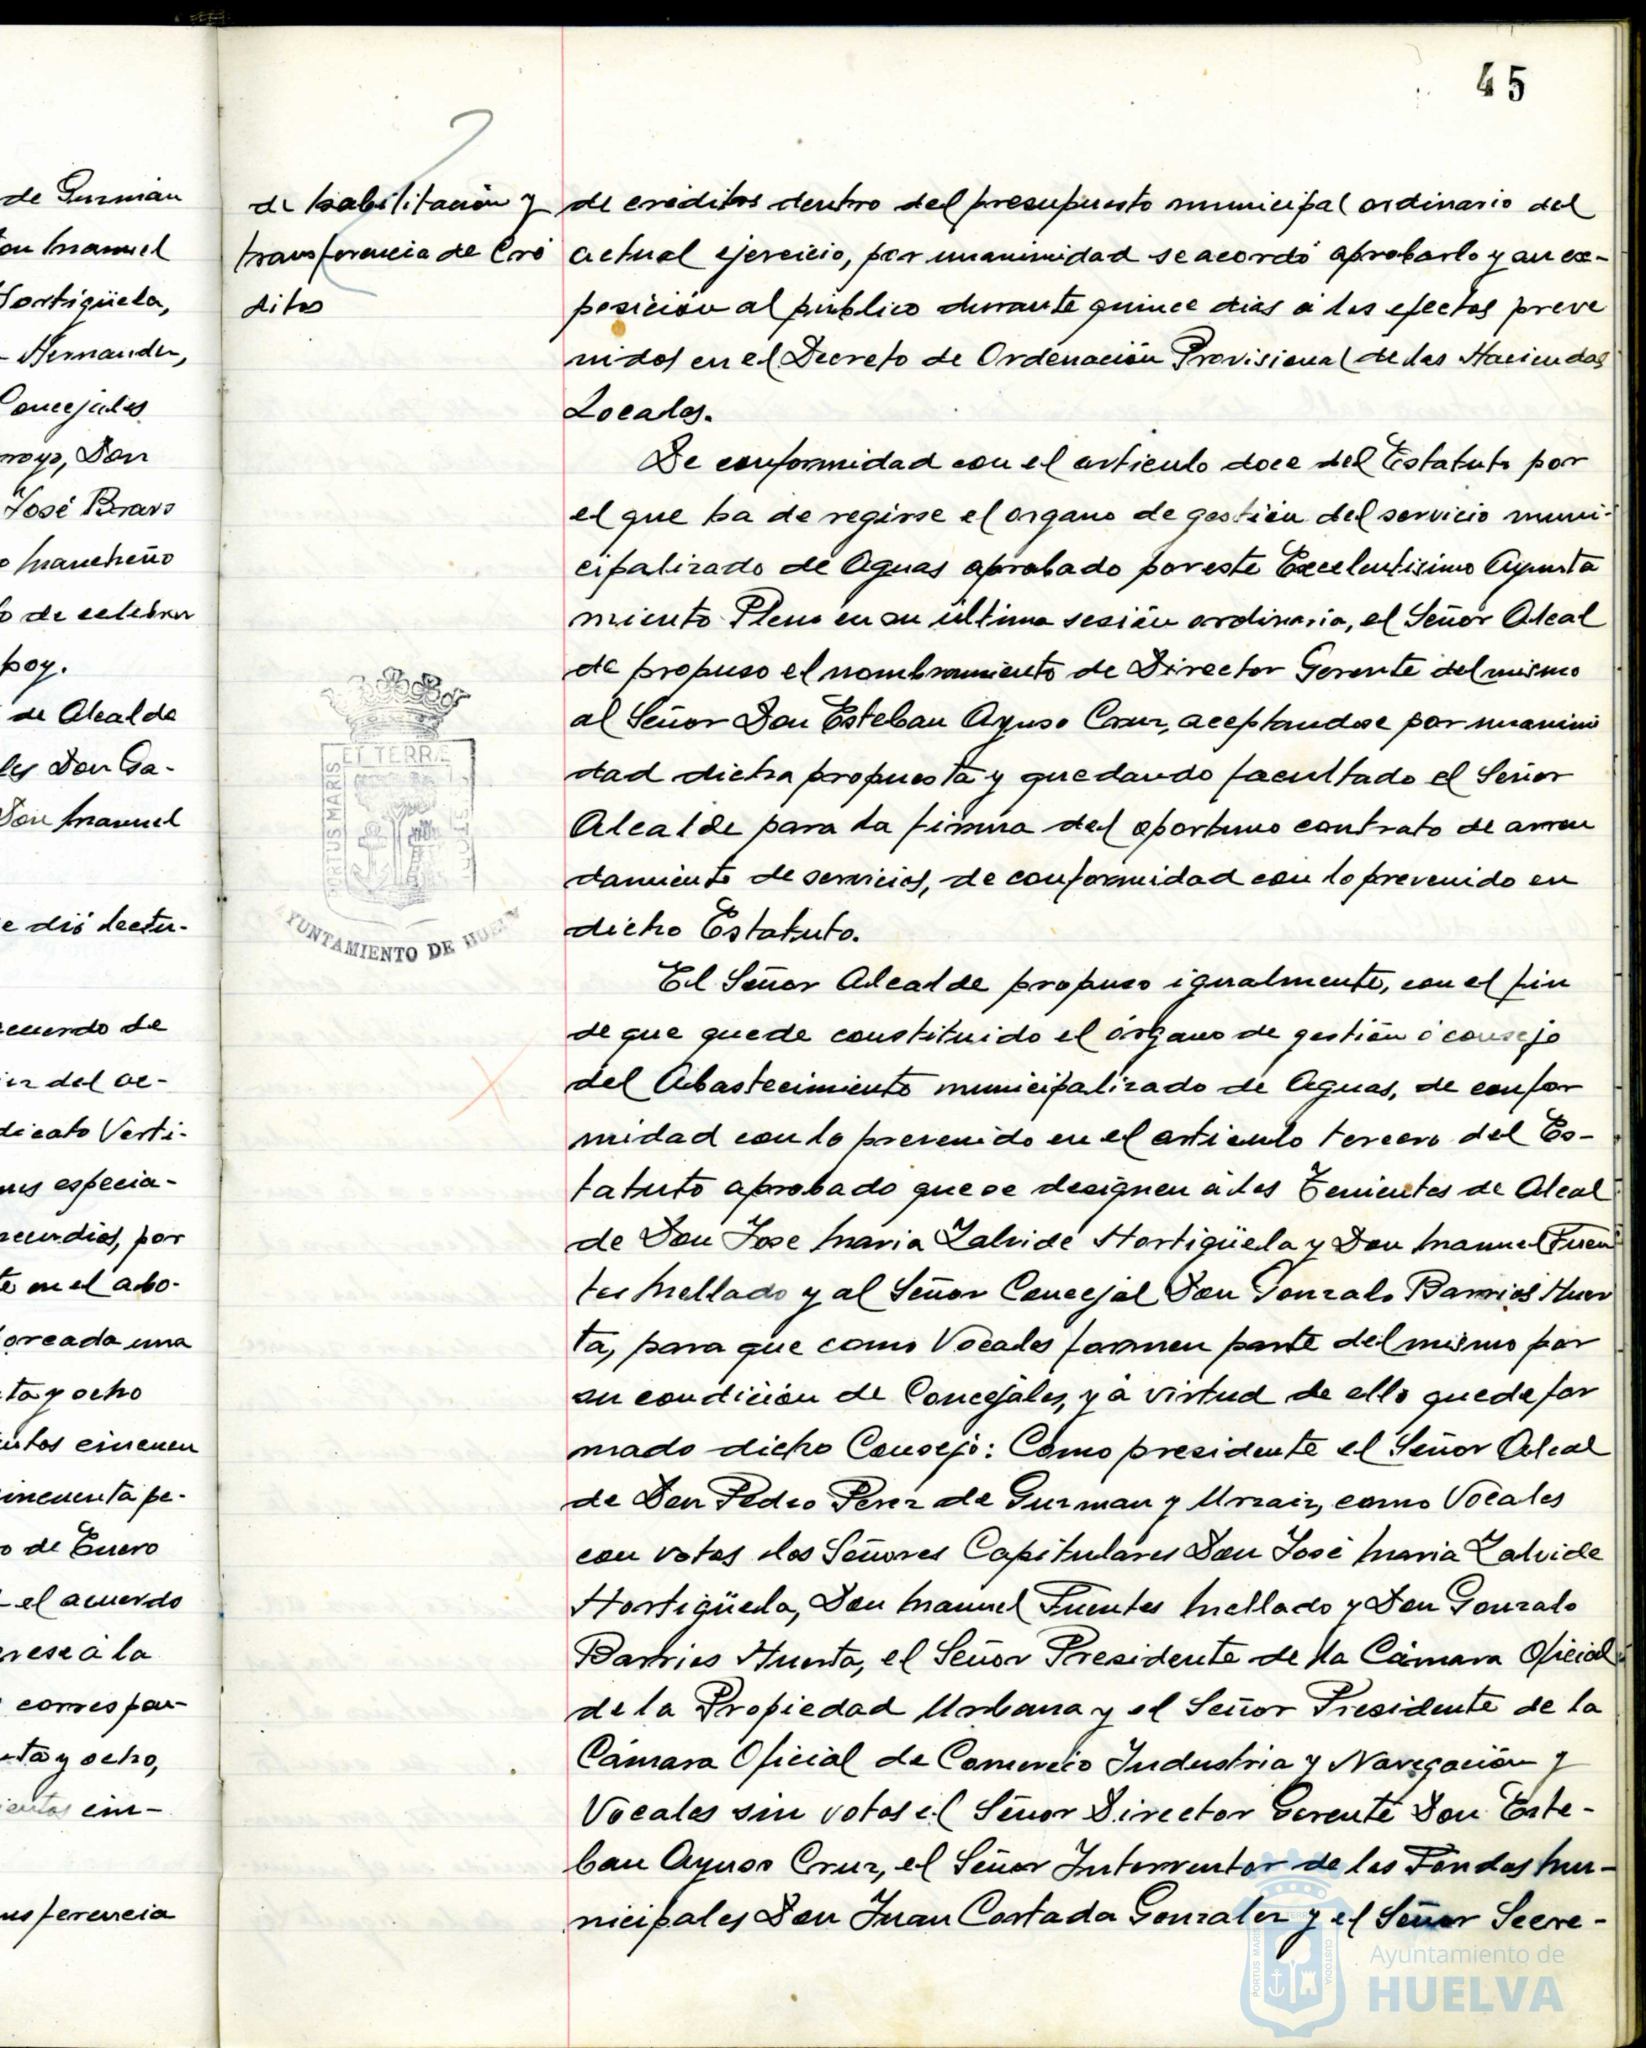 45
de Guzmán
on Manuel
Hortigüela,
Hernandez,
Concejales
rroyo, Don
José Bravo
o Mancheño
o de celebrar
poy.
de Alcalde
les Don Ga-
Don Manuel
e dió lectu-
cuerdo de
del ac-
dicato Verti-
especia-
cendios, por
te en el abo-
oreada una
ta y ocho
cincuen
incuenta pe-
o de Enero
el acuerdo
rese á la
correspon-
nta y ocho,
cientos cin-
nsferencia
de habilitación y
transferencia de Cré
ditos
ET TERRÆ
PORTUS MARIS
AYUNTAMIENTO DE HUELV
de créditos dentro del presupuesto municipal ordinario del
actual ejercicio, por unanimidad se acordó aprobarlo y su ex-
posición al público durante quince dias á los efectos preve
nidos en el Decreto de Ordenación Provisional de las Haciendas
Locales.
De conformidad con el articulo doce del Estatuto por
el que ha de regirse el organo de gestión del servicio muni-
cipalizado de Aguas aprobado por este Excelentisimo Ayunta
miento Pleno en su última sesión ordinaria, el Señor Alcal
de propuso el nombramiento de Director Gerente del mismo
al Señor Don Esteban Ayuso Cruz, aceptandose por unanimi
dad dicha propuesta y quedando facultado el Señor
Alcalde para la firma del oportuno contrato de arren
damiento de servicios, de conformidad con lo prevenido en
dicho Estatuto.
El Señor Alcalde propuso igualmente, con el fin
de que quede constituido el órgano de gestión ó consejo
del Abastecimiento municipalizado de Aguas, de confor
midad con lo prevenido en el articulo tercero del Es-
tatuto aprobado que se designen á los Tenientes de Alcal
de Don Jose Maria Zalvide Hortigüela y Don Manuel Fuen
tes Mellado y al Señor Concejal Don Gonzalo Barrios Huer
ta, para que como Vocales formen parte del mismo por
su condición de Concejales, y á virtud de ello quede for
mado dicho Consejo: Como presidente el Señor Alcal
de Don Pedro Perez de Guzman y Urzaiz, como Vocales
con votos los Señores Capitulares Don José Maria Zalvide
Hortigüela, Don Manuel Fuentes Mellado y Don Gonzalo
Barrios Huerta, el Señor Presidente de la Cámara Oficial
de la Propiedad Urbana y el Señor Presidente de la
Cámara Oficial de Comercio Industria y Navegación y
Vocales sin votos el Señor Director Gerente Don Este-
ban Ayuso Cruz, el Señor Interventor de los Fondos Mu-
nicipales Don Juan Cortada Gonzalez y el Señor Secre-
PORTUS MARIS
CUSTODIA
Ayuntamiento de
HUELVA